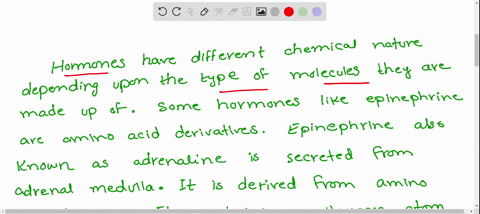 Hormones have different chemical nature
depending upon the type of molecules they are
made up of. Some hormones like epinephrine
are amino acid derivatives. Epinephrine also
known as adrenaline is secreted from
adrenal medulla. It is derived from amino